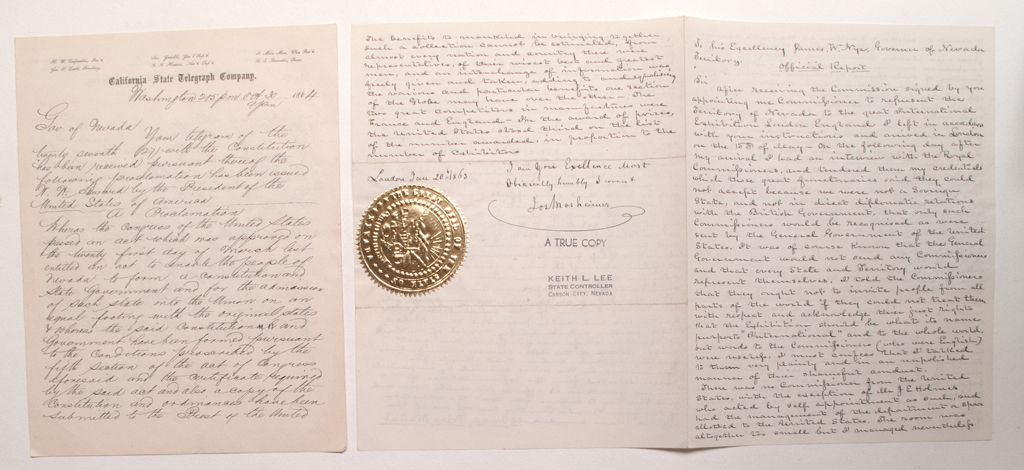 California State Telegraph Company.
Washington 215 pm Oct 30 1864
Gov of Nevada
Your telegram of the
twenty seventh (27) with the Constitution
has been received pursuant thereof the
following proclamation has been issued
W. H. Seward by the President of the
United States of America
A Proclamation
Whereas the Congress of the United States
passed an act which was approved on
the twenty first day of March last
entitled an act to enable the people of
Nevada to form a constitution and
State Government and for the admission
of Such State into the Union on an
equal footing with the original states
& whereas the said Constitution and
Government have been formed pursuant
to the Conditions prescribed by the
fifth Section of the act of Congress
aforesaid and the certificate required
by the said act and also a copy of the
Constitution and ordinances have been
Submitted to the Prest of the United
The benefits to mankind in bringing together
such a collection cannot be estimated, from
almost every nation and country there were
representatives, of their wisest best and greatest
men, and an interchange of information was
freely given and taken,
the various and particular benefits one section
of the Globe may have over the other - The
two great competitors in manufactures were
France and England - In the award of prizes,
the United States stood third on the list
of the number awarded, in proportion to the
number of Exhibitors
I am your Excellence Most
Obediently humbly
London Jan 20th 1863
Jos Mosheimer
A TRUE COPY
KEITH L. LEE
STATE CONTROLLER
CARSON CITY, NEVADA
To his Excellency James W. Nye, Governor of Nevada
Territory.
Official Report
Sir
After receiving the Commission signed by you
appointing me Commissioner to represent the
Territory of Nevada to the great International
Exhibition London England. I left in accordance
with your instructions and arrived in London
on the 15th of May - On the following day after
my arrival I had an interview with the Royal
Commissioners, and tendered them my credentials
which those great functionaries said they could
not accept because we were not a Sovereign
State, and not in direct diplomatic relations
with the British Government, that only such
Commissioners would be recognised as were
sent by the General Government of the United
States. It was of course known that the General
Government would not send any Commissioners
and that every State and Territory would
represent themselves. I told the Commissioners
that they ought not to invite people from all
parts of the world if they could not treat them
with respect and acknowledge their just rights
that the Exhibition should be what its name
purports "International" and to the whole world,
but words to the Commissioners (who were English)
were useless. I must confess that I talked
to them very plainly and in an unpolished
manner of their shameful conduct.
There was no Commissioner from the United
States, with the exception of Mr J E Holmes
who acted by self appointment as such, and
had the management of the department or space
allotted to the United States. The room was
altogether too small but I managed nevertheless